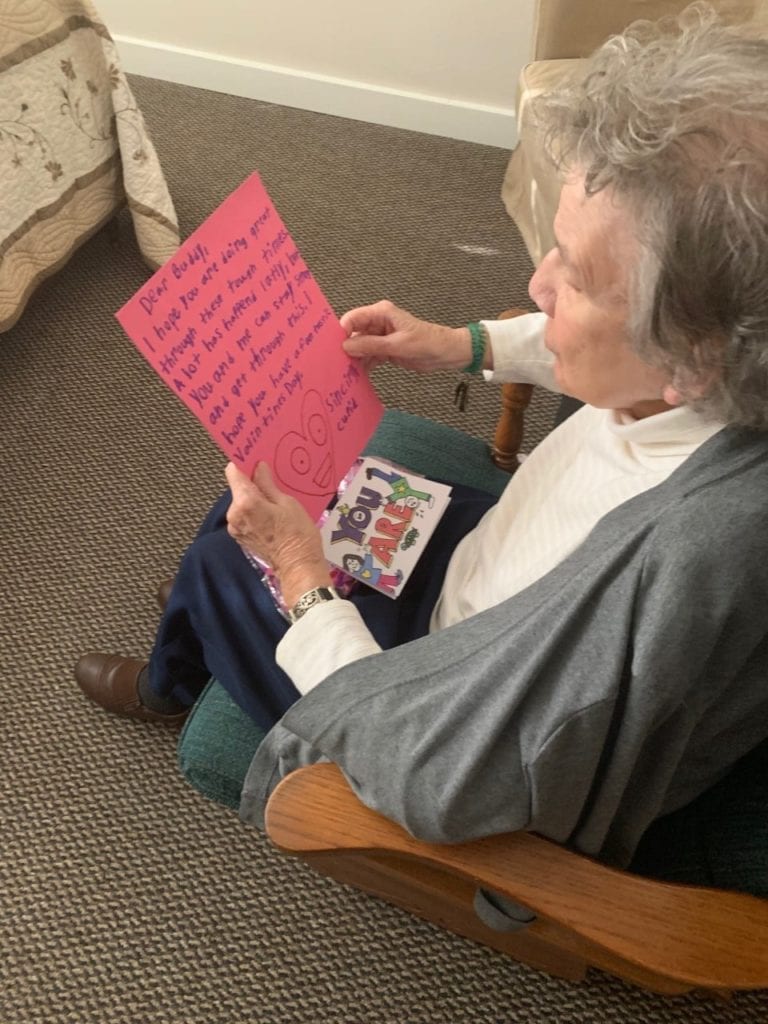 Dear Buddy,
I hope you are doing great
through these tough times
A lot has happend latly, but
you and me can stay
and get through this. I
hope you have a
Valintines Day.
cupid
YOU
ARE